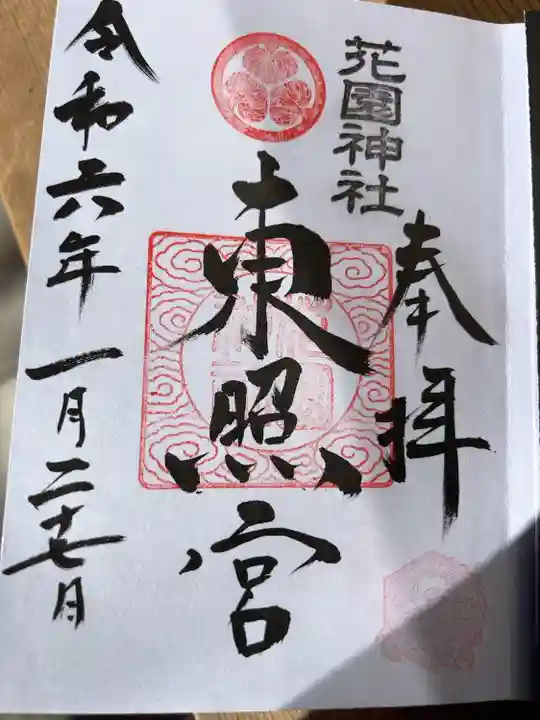 花園神社
奉拝
東照宮
令和六年 一月二十七日